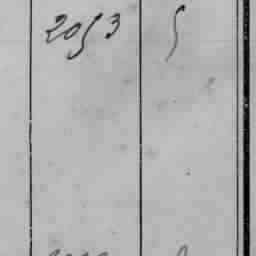 2053 5